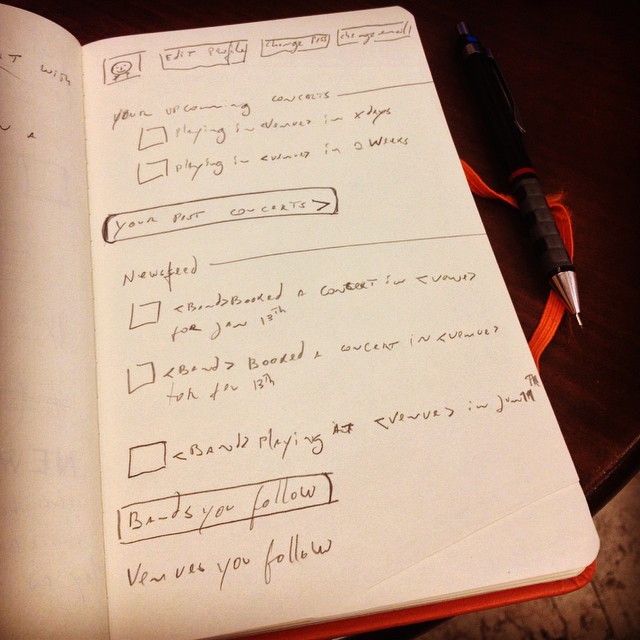 T with
Edit Profile Change Pass change email
your upcoming concerts
Playing in <venue> in x days
Playing in <venue> in 2 weeks
your past concerts >
Newsfeed
<Band> Booked a concert in <venue>
for Jan 13th
<Band> Booked a concert in <venue>
for Jan 13th
<Band> Playing at <venue> in Jun 19TH
Bands you follow
Venues you follow